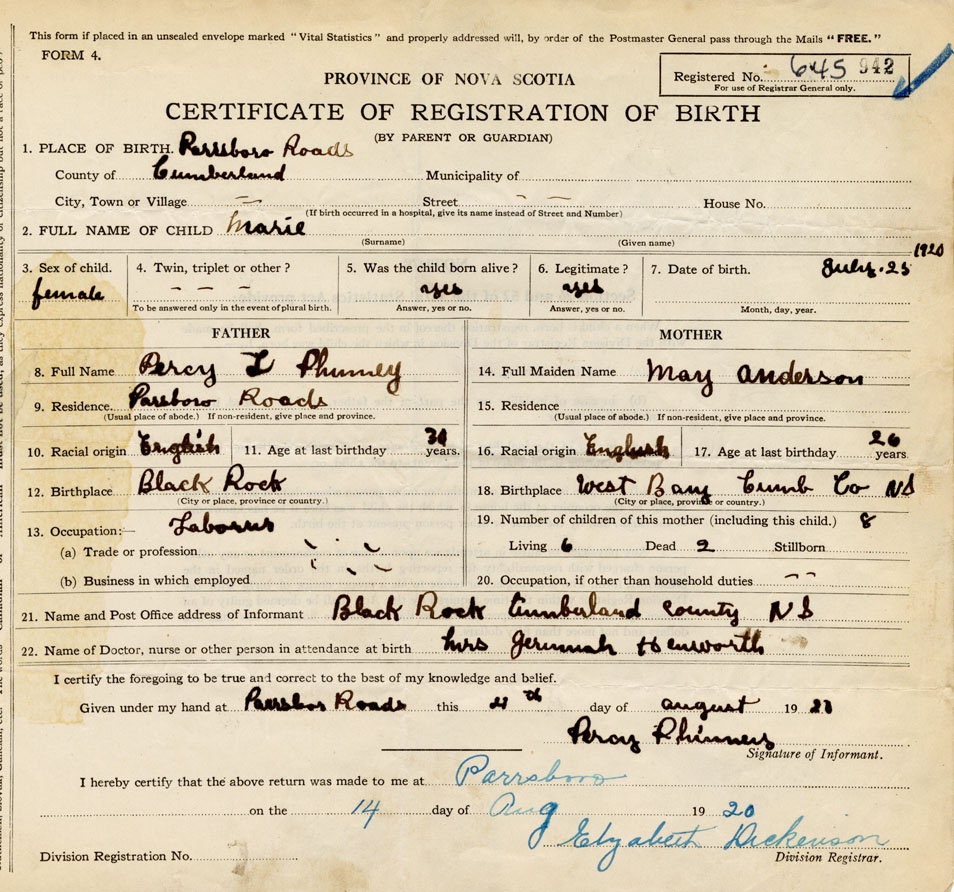 This form if placed in an unsealed envelope marked "Vital Statistics" and properly addressed will, by order of the Postmaster General pass through the Mails "FREE."
FORM 4.
Registered No. 645 942
For use of Registrar General only.
PROVINCE OF NOVA SCOTIA
CERTIFICATE OF REGISTRATION OF BIRTH
(BY PARENT OR GUARDIAN)
1. PLACE OF BIRTH. Parrsboro Roads
County of Cumberland Municipality of
City, Town or Village — Street — — House No.
(If birth occurred in a hospital, give its name instead of Street and Number)
2. FULL NAME OF CHILD Marie
(Surname) (Given name)
3. Sex of child. 4. Twin, triplet or other? 5. Was the child born alive? 6. Legitimate? 7. Date of birth. July. 25 1920
female – – – yes yes
To be answered only in the event of plural birth. Answer, yes or no. Answer, yes or no. Month, day, year.
FATHER MOTHER
8. Full Name Percy L Phinney 14. Full Maiden Name May anderson
9. Residence. Parsboro Roads 15. Residence
(Usual place of abode.) If non-resident, give place and province. (Usual place of abode.) If non-resident, give place and province.
10. Racial origin English 11. Age at last birthday years. 16. Racial origin English 17. Age at last birthday 26 years
12. Birthplace Black Rock 18. Birthplace West Bay Cumb Co NS
(City or place, province or country.) (City or place, province or country.)
13. Occupation:— 19. Number of children of this mother (including this child.) 8
(a) Trade or profession Living 6 Dead 2 Stillborn
(b) Business in which employed 20. Occupation, if other than household duties – –
21. Name and Post Office address of Informant Black Rock Cumberland County NS
22. Name of Doctor, nurse or other person in attendance at birth Mrs
I certify the foregoing to be true and correct to the best of my knowledge and belief.
Given under my hand at Roads this th day of august 19
Percy Phinney
Signature of Informant.
I hereby certify that the above return was made to me at Parrsboro
on the 14 day of Aug 1920
Elizabeth Dickenson
Division Registration No. Division Registrar.